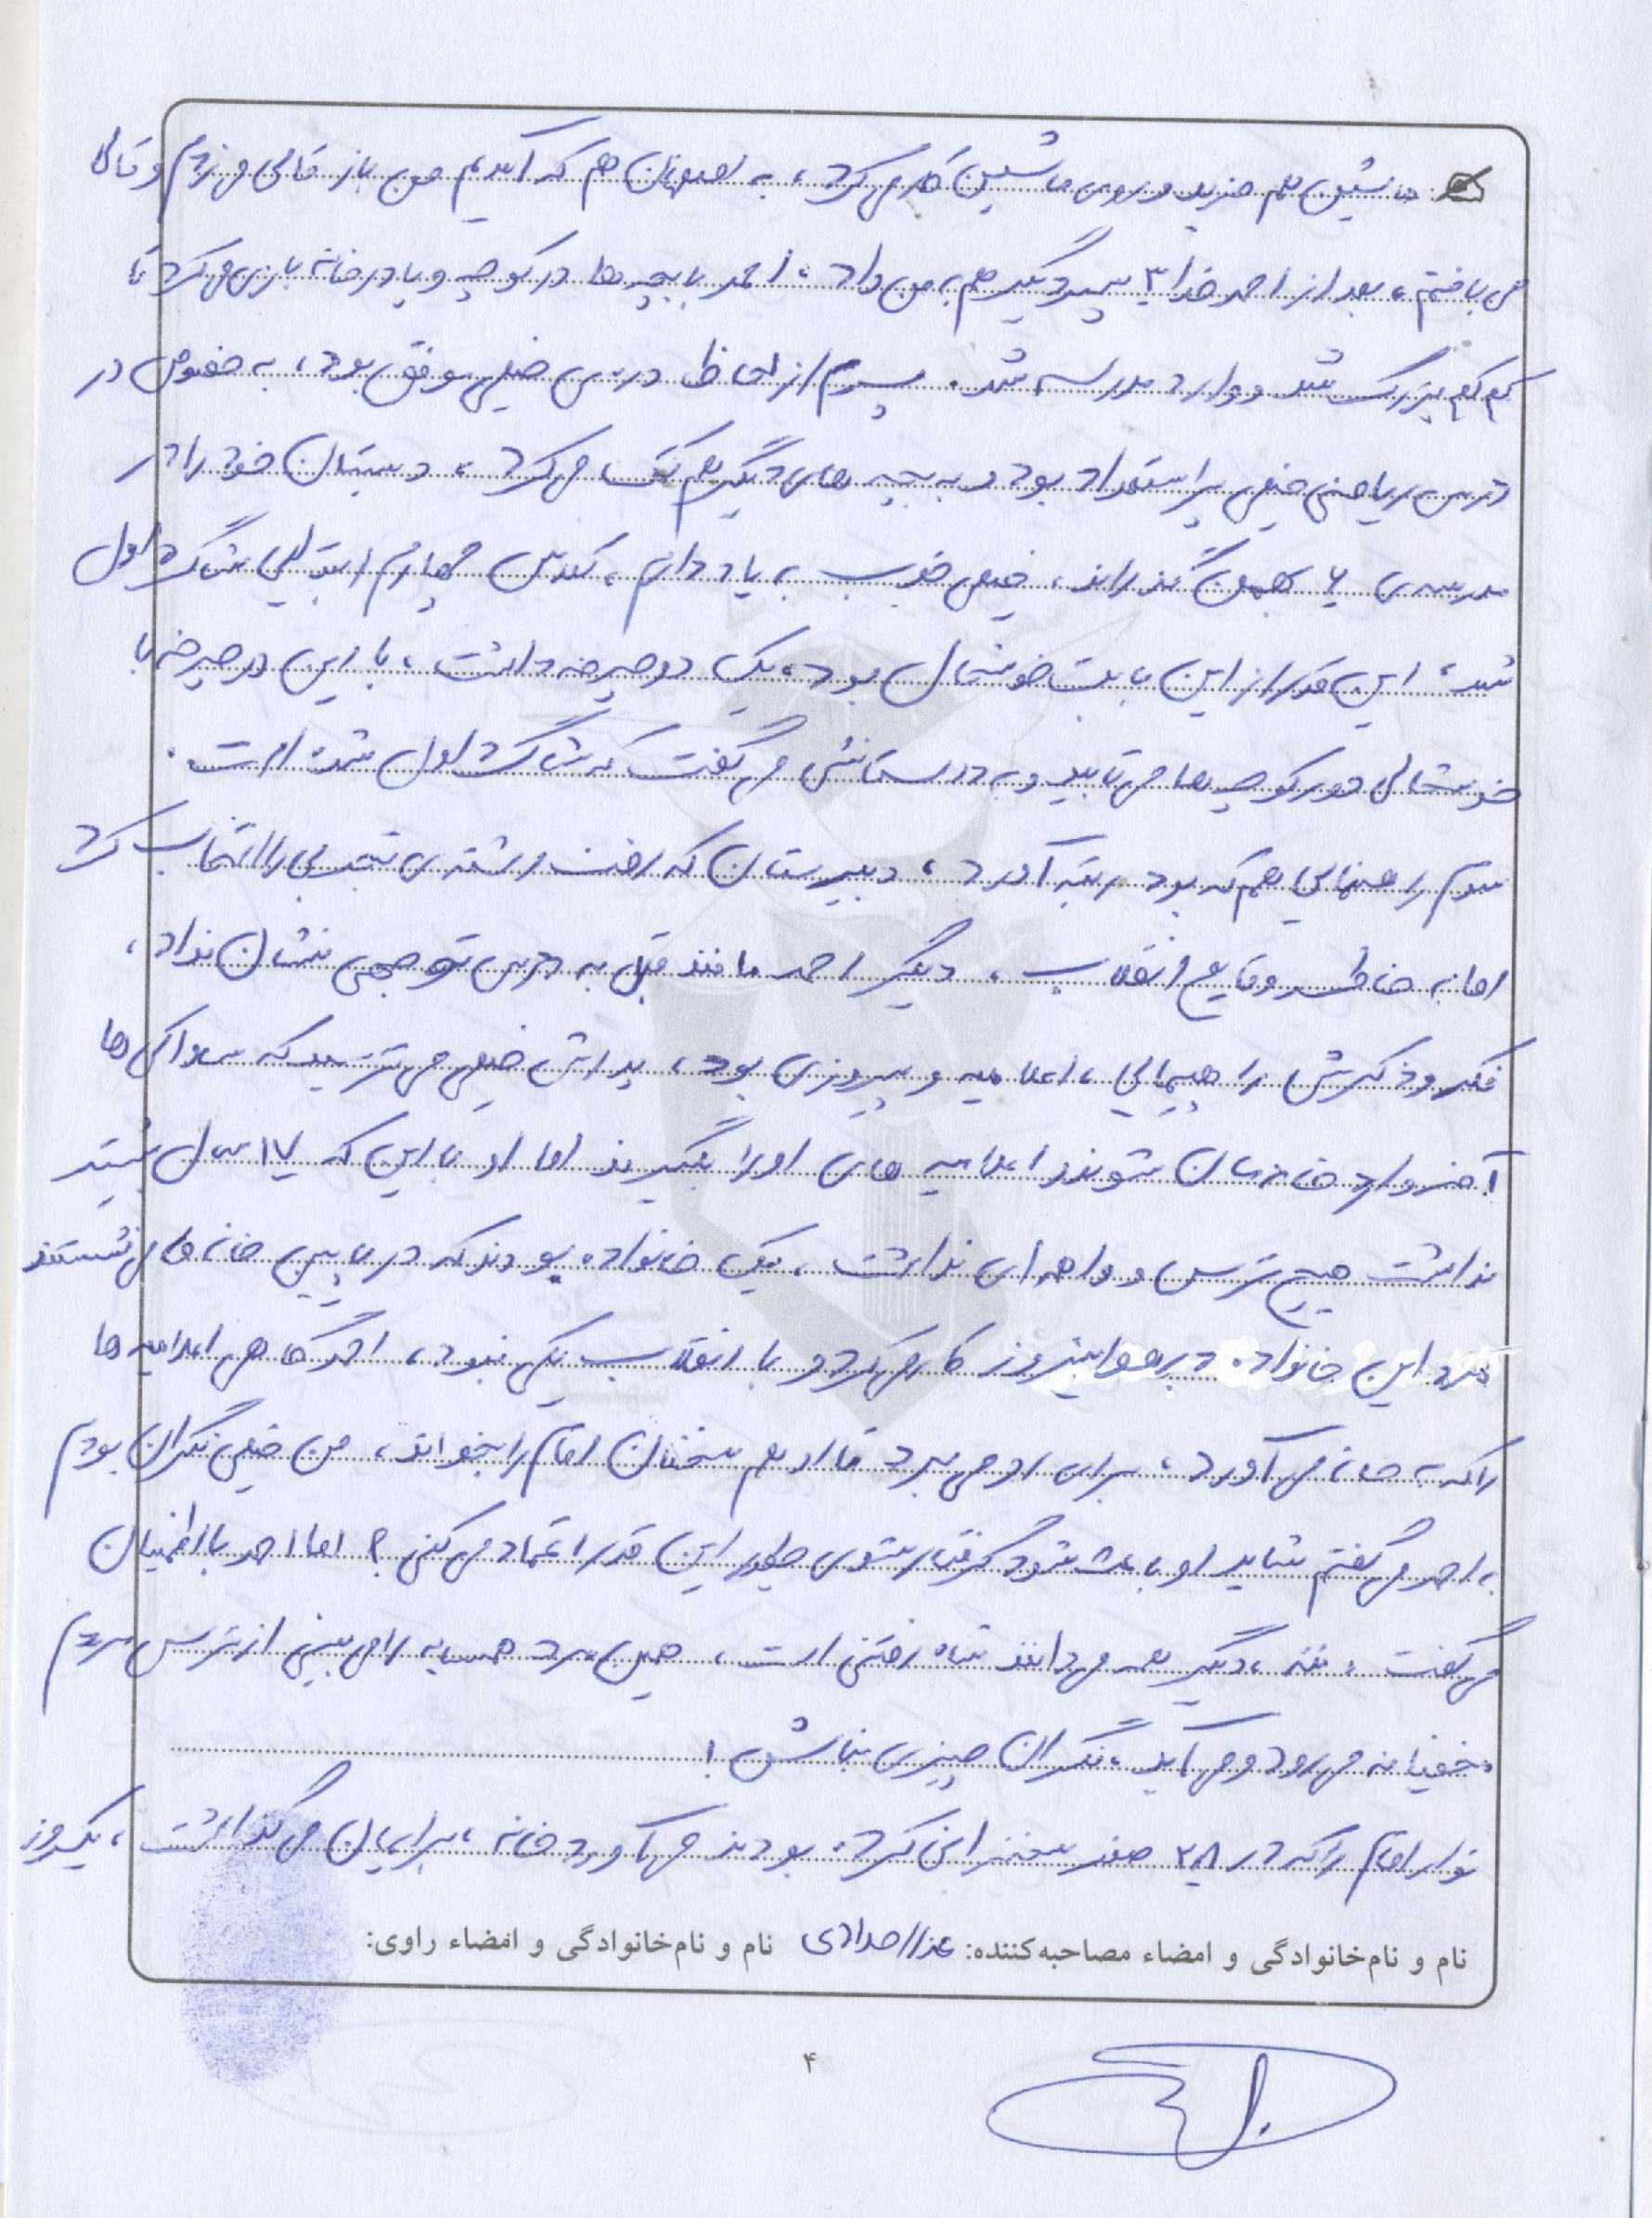 ماشین هم خرید و روی ماشین کار می‌کرد، به اصفهان هم که آمدیم من باز قالی می‌زدم و قالی
می‌بافتم، بعد از احمد خدا ۳ پسر دیگر هم به من داد، احمد با بچه‌ها در کوچه و یا در خانه بازی می‌کرد تا
کم کم بزرگ شد و وارد مدرسه شد. پسرم از لحاظ درسی خیلی موفق بود، به خصوص در
درس ریاضی خیلی پر استعداد بود و به بچه‌های دیگر هم کمک می‌کرد، دبستان خود را در
مدرسه‌ی ۶ بهمن گذراند، خیلی خوب به یاد دارم، کلاس چهارم ابتدایی شاگرد اول
شد، این قدر از این بابت خوشحال بود، یک دوچرخه داشت، با این دوچرخه با
خوشحالی دور کوچه‌ها می‌تابید و به دوستانش می‌گفت که شاگرد اول شده است.
سوم راهنمایی هم که بود رتبه آورد، دبیرستان که رفت رشته‌ی تجربی را انتخاب کرد
اما به خاطر وقایع انقلاب، دیگر احمد مانند قبل به درس توجهی نشان نداد،
فکر و ذکرش راهپیمایی، اعلامیه و پیروزی بود، پدرش خیلی می‌ترسید که ساواکی‌ها
آخر وارد خانه‌مان شوند و اعلامیه‌های او را بگیرند اما او با این که ۱۷ سال بیشتر
نداشت هیچ ترس و واهمه‌ای نداشت، یک خانواده بودند که در پایین خانه ما می‌نشستند
مرد این خانواده در هوانیروز کار می‌کرد و با انقلاب یکی نبود، احمد گاهی اعلامیه‌ها
را که به خانه می‌آورد، برای او می‌برد تا او هم سخنان امام را بخواند، من خیلی نگران بودم
به احمد می‌گفتم شاید او باعث شود گرفتار شوی چطور این قدر اعتماد می‌کنی؟ اما احمد با اطمینان
می‌گفت، ننه، دیگر همه می‌دانند شاه رفتنی است، همین مرد همسایه را می‌بینی از ترس مردم
مخفیانه می‌رود و می‌آید، نگران چیزی نباش!
نوار امام را که در ۲۸ صفر سخنرانی کرده بودند می‌آورد خانه، برایمان می‌گذاشت، یکروز
نام و نام‌خانوادگی و امضاء مصاحبه‌کننده: عذرا حدادی نام و نام‌خانوادگی و امضاء راوی:
۴